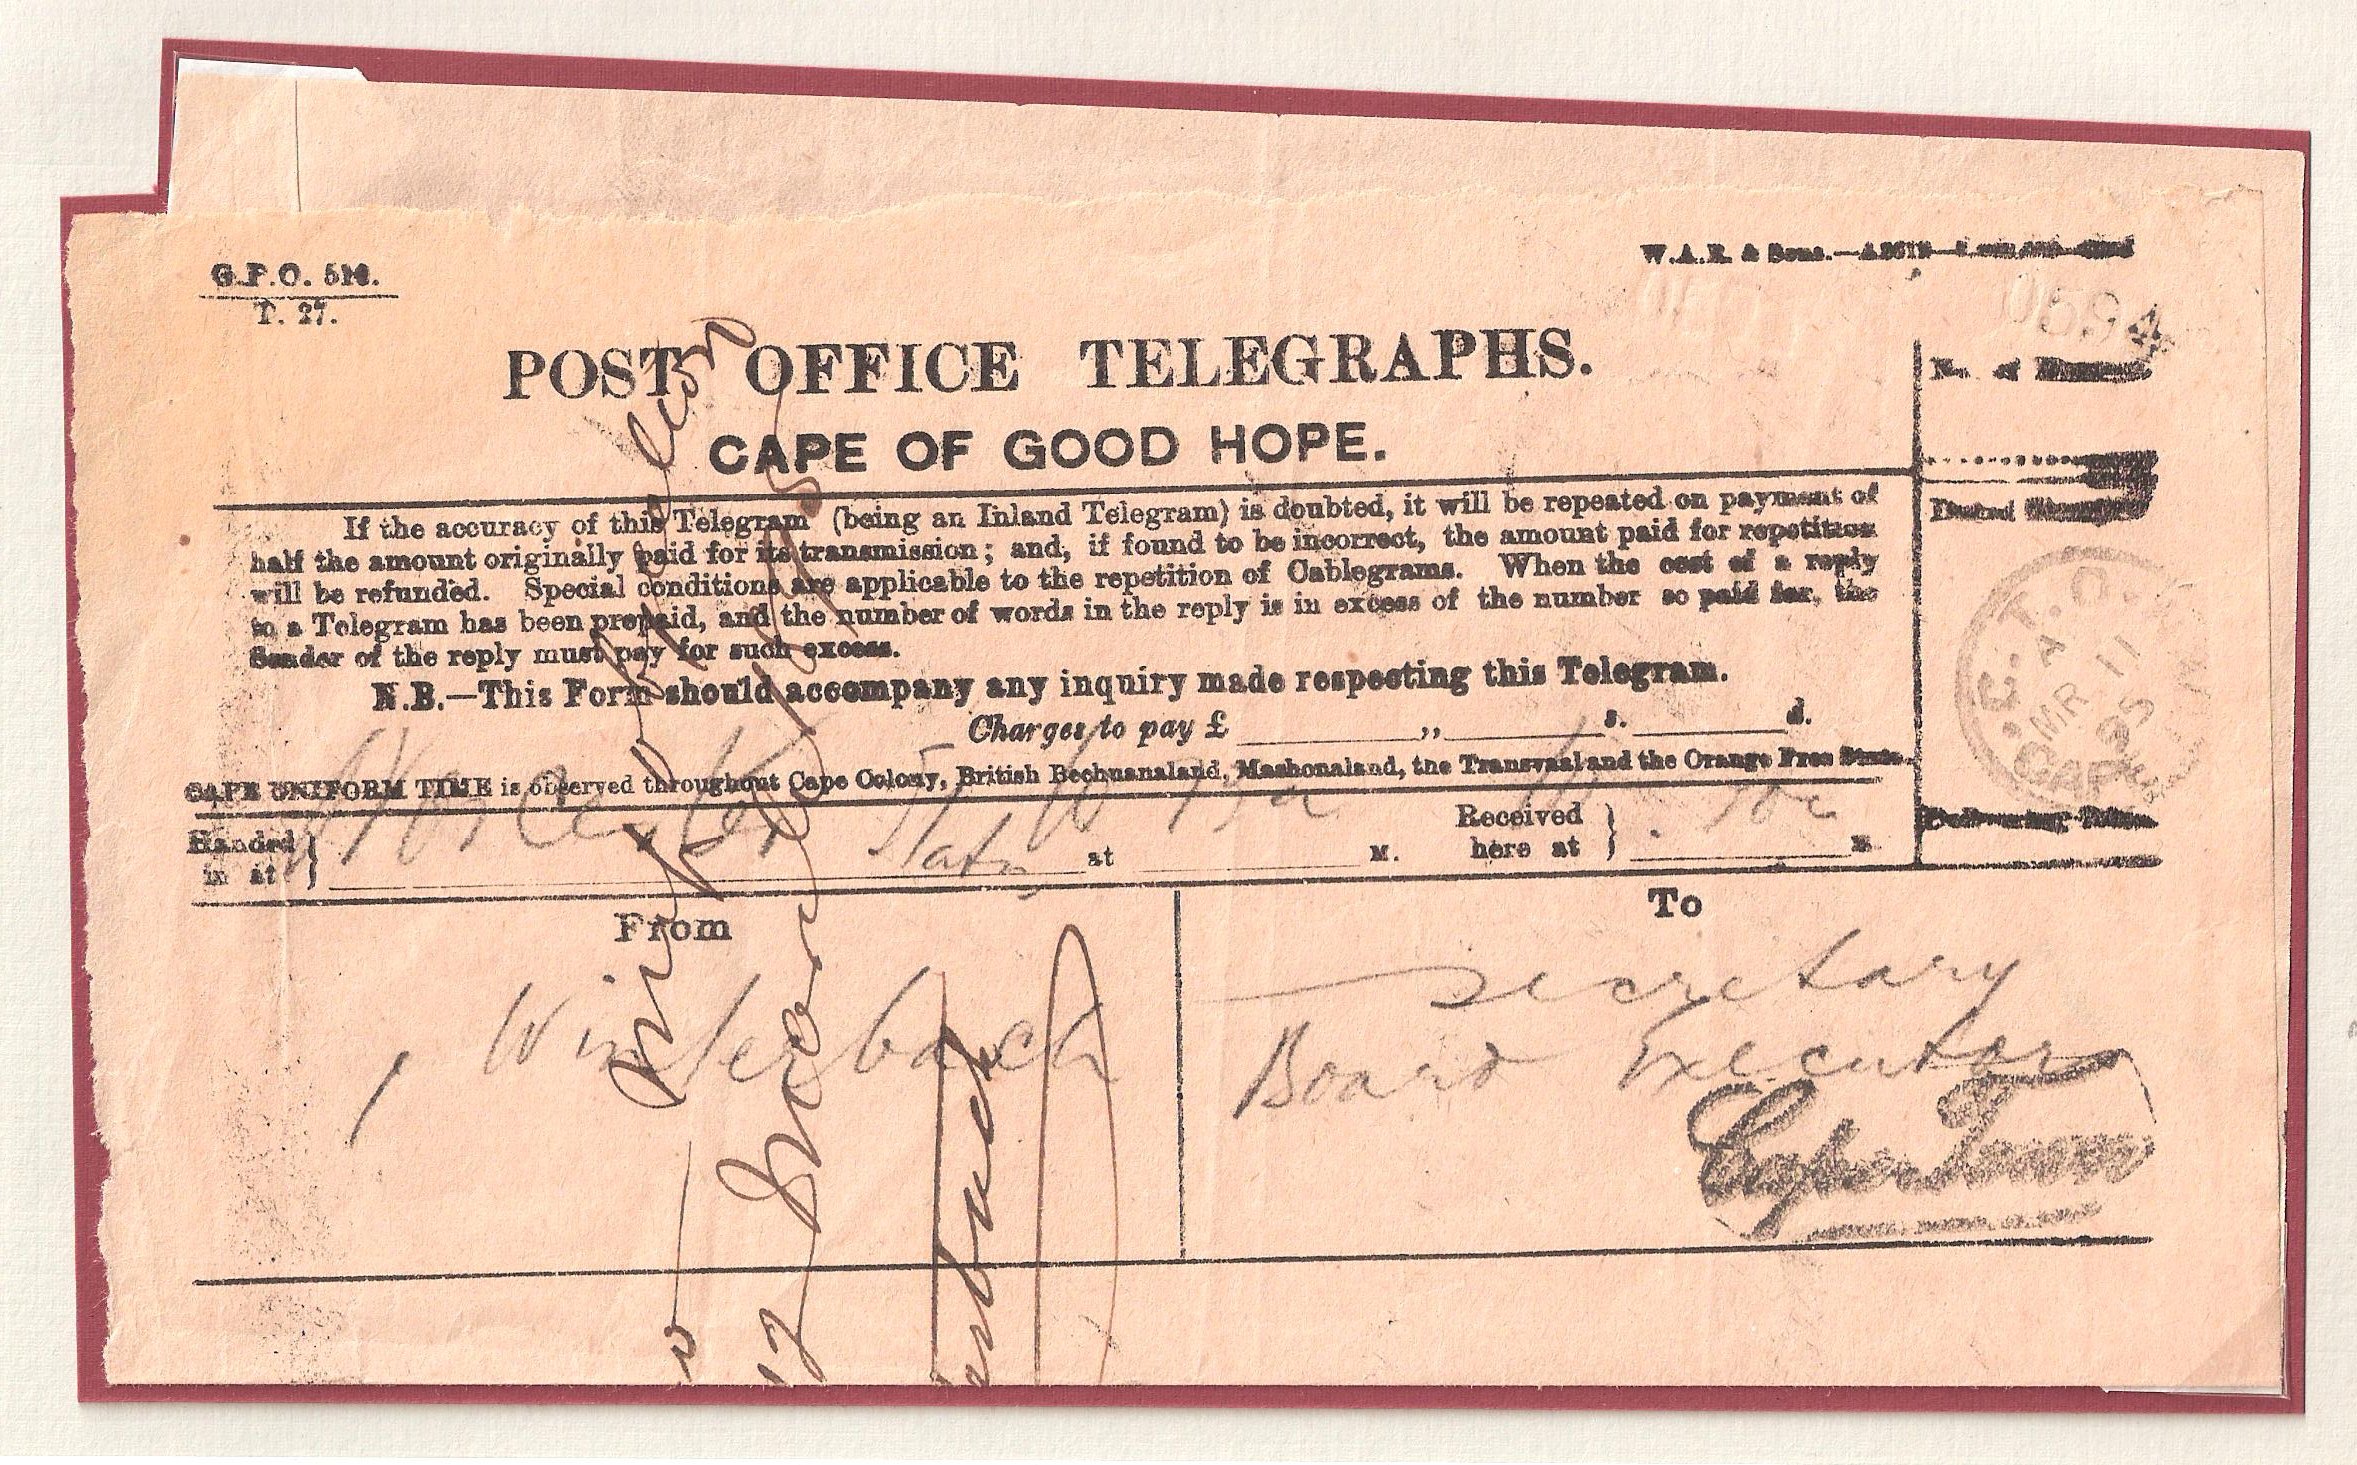 G.P.O. 516.
T. 27.
W.A.R. & Sons.
0594
POST OFFICE TELEGRAPHS.
CAPE OF GOOD HOPE.
No. of
If the accuracy of this Telegram (being an Inland Telegram) is doubted, it will be repeated on payment of
half the amount originally paid for its transmission; and, if found to be incorrect, the amount paid for repetition
will be refunded. Special conditions are applicable to the repetition of Cablegrams. When the cost of a reply
to a Telegram has been prepaid, and the number of words in the reply is in excess of the number so paid for, the
Sender of the reply must pay for such excess.
N.B.—This Form should accompany any inquiry made respecting this Telegram.
Charges to pay £ ,, s. d.
CAPE UNIFORM TIME is observed throughout Cape Colony, British Bechuanaland, Mashonaland, the Transvaal and the Orange Free State.
C.T.O.
A
MR 11
95
Handed
in at
Worcester Statn at M.
Received
here at M
Delivering
From
Winterbach
To
Secretary
Board Executor
Cape Town
12 March